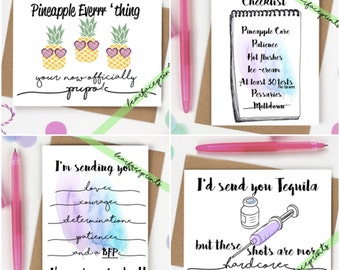 Pineapple Everrr 'thing
your now officially
pupo
Checklist
Pineapple Core
Patience
Hot flushes
Ice-cream
At least 30 tests
Pessaries
Meltdown
I'm sending you
love
courage
determination
patience
and a BFP
I'd send you Tequila
but these shots are more
hardcore